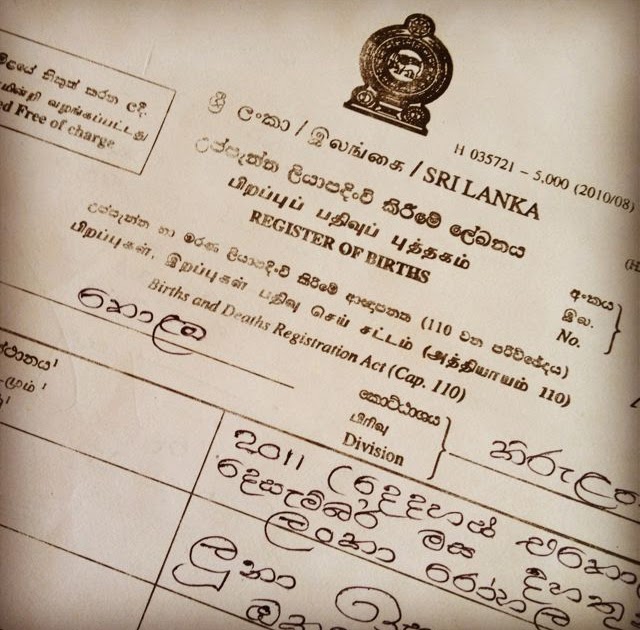 නිකුත් කරන ලදී
வழங்கப்பட்டது
Free of charge
ශ්‍රී ලංකා / இலங்கை / SRI LANKA
H 035721 – 5,000 (2010/08)
උප්පැත්ත ලියාපදිංචි කිරීමේ ලේඛනය
பிறப்புப் பதிவுப் புத்தகம்
REGISTER OF BIRTHS
උප්පැත්ත හා මරණ ලියාපදිංචි කිරීමේ ආඥාපනත (110 වන පරිච්ඡේදය)
பிறப்புகள், இறப்புகள் பதிவு செய் சட்டம் (அத்தியாயம் 110)
Births and Deaths Registration Act (Cap. 110)
අංකය
இல.
No.
කොළඹ
කොට්ඨාශය
பிரிவு
Division
2011 (දෙදහස්
දෙසැම්බර් මස
ලංකා රෝහල
ලුනා